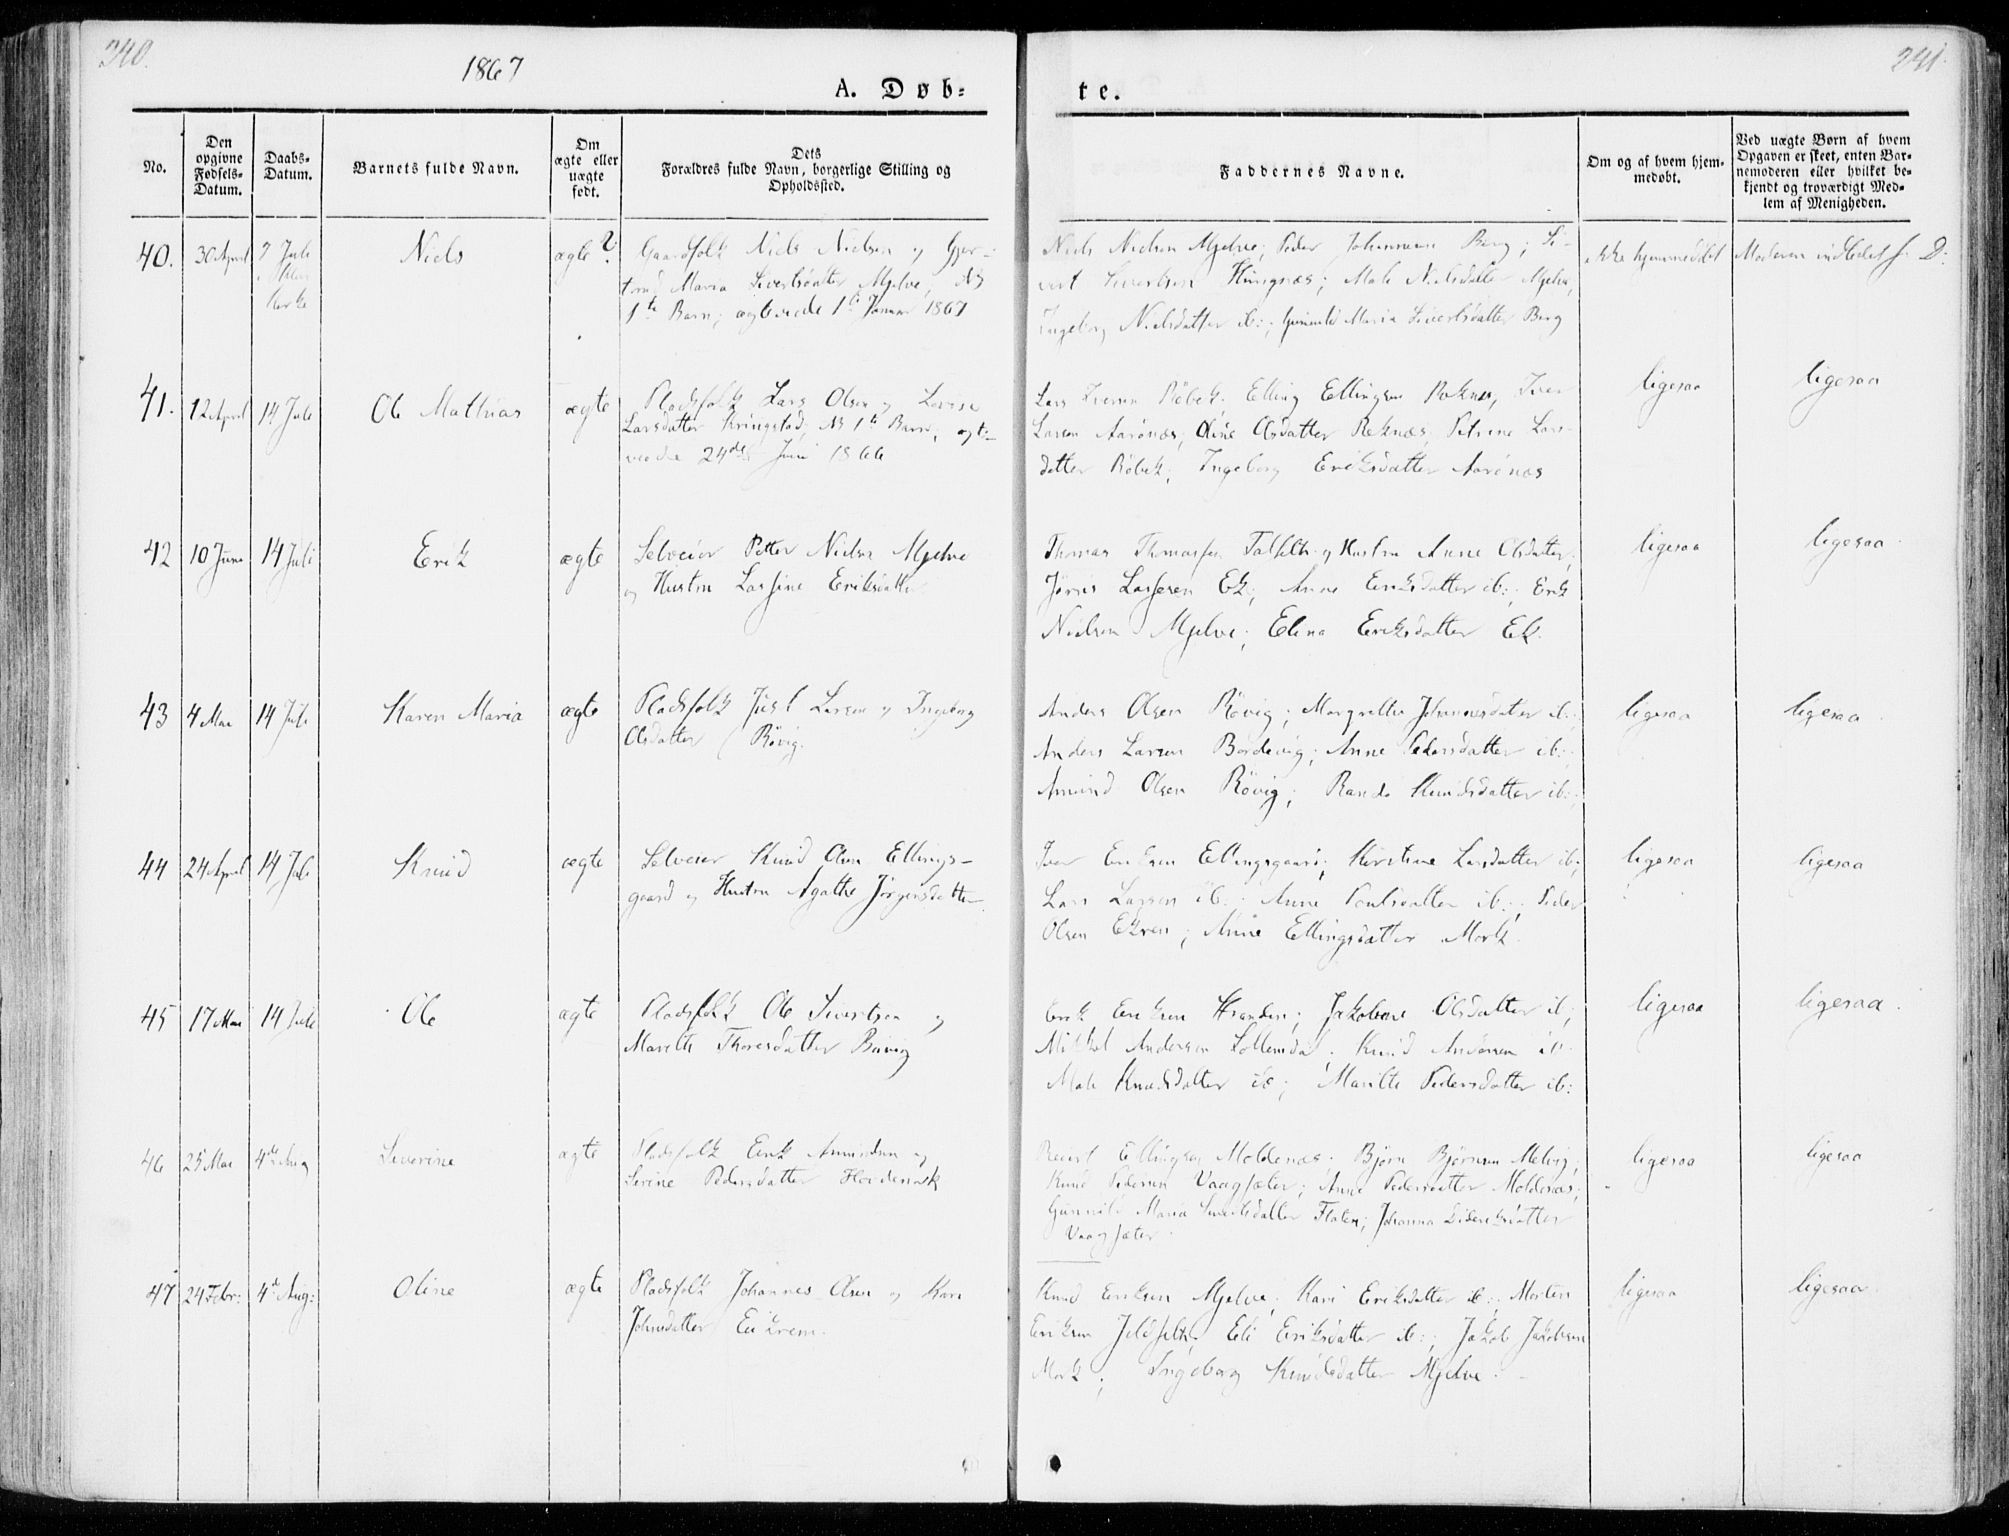 240.
1867
A. Døb-
No.
Den opgivne Fødsels-Datum.
Daabs-Datum.
Barnets fulde Navn.
Om ægte eller uægte født.
Dets Forældres fulde Navn, borgerlige Stilling og Opholdssted.
40. 30 April 7 Juli Niels ægte? Gaardfolk Niels Nielsen og Gjer-
Kirke trud Maria Sivertsdatter Mjelve,
1ste Barn; ægteviede 1ste Januar 1867
41. 12 April 14 Juli Ole Mathias ægte Pladsfolk Lars Olsen og Lovise
Larsdatter Kringstad, 1ste Barn, ægte-
viede 24de Juni 1866
42 10 Juni 14 Juli Erik ægte Selveier Petter Nielsen Mjelve
og Hustru Larsine Eriksdatter
43 4 Mai 14 Juli Karen Maria ægte Pladsfolk Just Larsen og Ingeborg
Olsdatter Røvig.
44 24 April 14 Juli Knud ægte Selveier Knud Olsen Ellings-
gaard og Hustru Agathe Jørgensdatter
45 17 Mai 14 Juli Ole ægte Pladsfolk Ole Sivertsen og
Marethe Thoresdatter
46 25 Mai 4de Aug Severine ægte Pladsfolk Erik Amundsen og
Serine Pedersdatter Hovdenak
47 24 Febr: 4de Aug: Oline ægte Pladsfolk Johannes Olsen og Kari
Johnsdatter Eikrem.
241
te.
Faddernes Navne.
Om og af hvem hjem-
medøbt.
Ved uægte Børn af hvem
Opgaven er skeet, enten Bar-
nemoderen eller hvilket be-
kjendt og troværdigt Med-
lem af Menigheden.
Niels Nielsen Mjelve; Peder Johannesen Berg; Si- ikke hjemmedøbt Moderen indledet s. D:
vert Sivertsen Hungnæs; Male Nielsdatter Mjelve,
Ingeborg Nielsdatter ib:; Gunild Maria Sivertsdatter Berg
Lars Iversen Røbek; Elling Ellingsen Reknes, Iver ligesaa ligesaa
Larsen Aarønæs; Oline Olsdatter Reknæs, Petrine Lars-
datter Røbek; Ingeborg Eriksdatter Aarønæs
Thomas Thomassen og Hustru Anne Olsdatter; ligesaa ligesaa
Jørgis Lassesen Ek; Anne Eriksdatter ib:; Erik
Nielsen Mjelve; Elina Eriksdatter Ek.
Anders Olsen Røvig; Margrethe Johannesdatter ib:; ligesaa ligesaa
Anders Larsen Bordevig; Anne Pedersdatter ib:;
Amund Olsen Røvig; Randi Knudsdatter ib:;
Iver Eriksen Ellingsgaard; Kirstine Larsdatter ib; ligesaa ligesaa
Lars Larsen ib:; Anne Poulsdatter ib:; Peder
Olsen Ekren; Anne Ellingsdatter Mork.
Erik Eriksen Stranden; Jakobine Olsdatter ib; ligesaa ligesaa
Mikkel Andersen Sollemdal; Knud Andersen ib
Male Knudsdatter ib; Marithe Pedersdatter ib:
Ellingsen Moldenæs; Bjørn Bjørnsen Melvig; ligesaa ligesaa
Knud Pedersen Vaagsæter; Anne Pedersdatter Moldenæs;
Gunnild Maria Sivertsdatter Flaten; Johanna Didriksdatter
Vaagsæter.
Knud Eriksen Mjelve; Kari Eriksdatter ib:; Morten ligesaa ligesaa
Eriksen Eli Eriksdatter ib:; Jakob Jakobsen
Mork; Ingeborg Knudsdatter Mjelve.